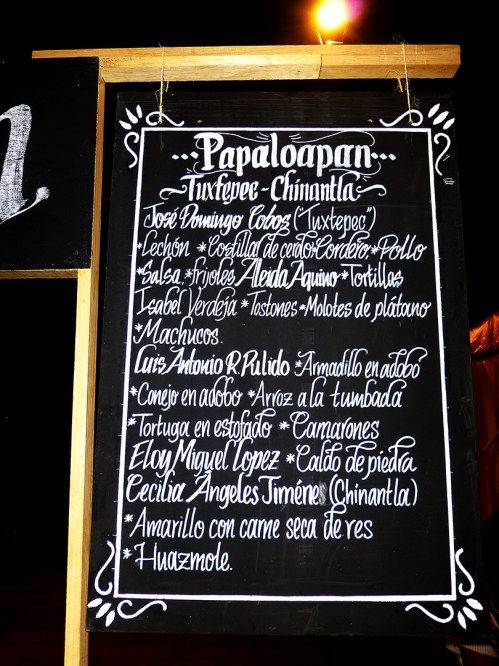 ...Papaloapan...
~Tuxtepec - Chinantla~
José Domingo Cobos ("Tuxtepec")
*Lechón *Costillas de cerdo *Cordero *Pollo
*Salsa *frijoles Aleida Aquino *Tortillas
Isabel Verdeja *Tostones *Molotes de plátano
*Machucos.
Luis Antonio R. Pulido *Armadillo en adobo
*Conejo en adobo *Arroz a la tumbada
*Tortuga en estofado *Camarones
Eloy Miguel Lopez *Caldo de piedra
Cecilia Ángeles Jiménes (Chinantla)
*Amarillo con carne seca de res
*Huazmole.